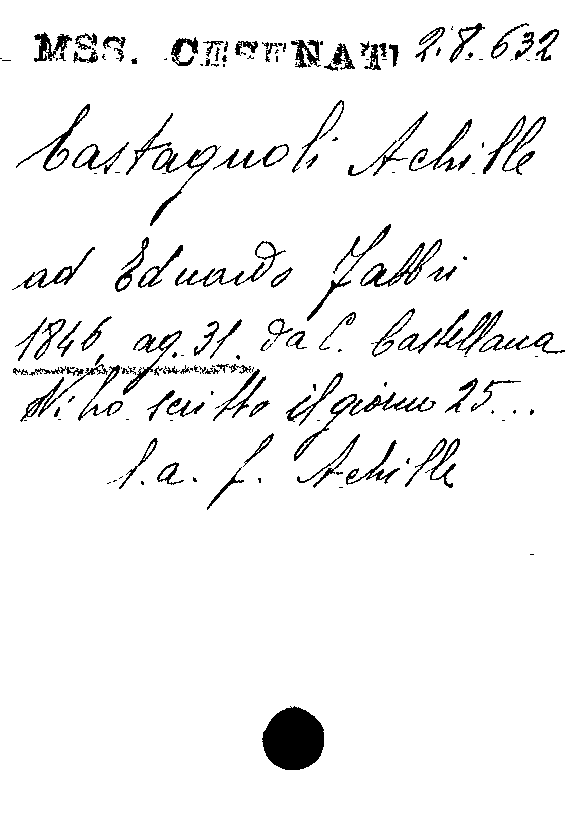 MSS. CESENATI 2.8.632
Castagnoli Achille
ad Eduardo Fabbri
1846, ag. 31. da C. Castellana
Vi ho scritto il giorno 25...
l. a. f. Achille